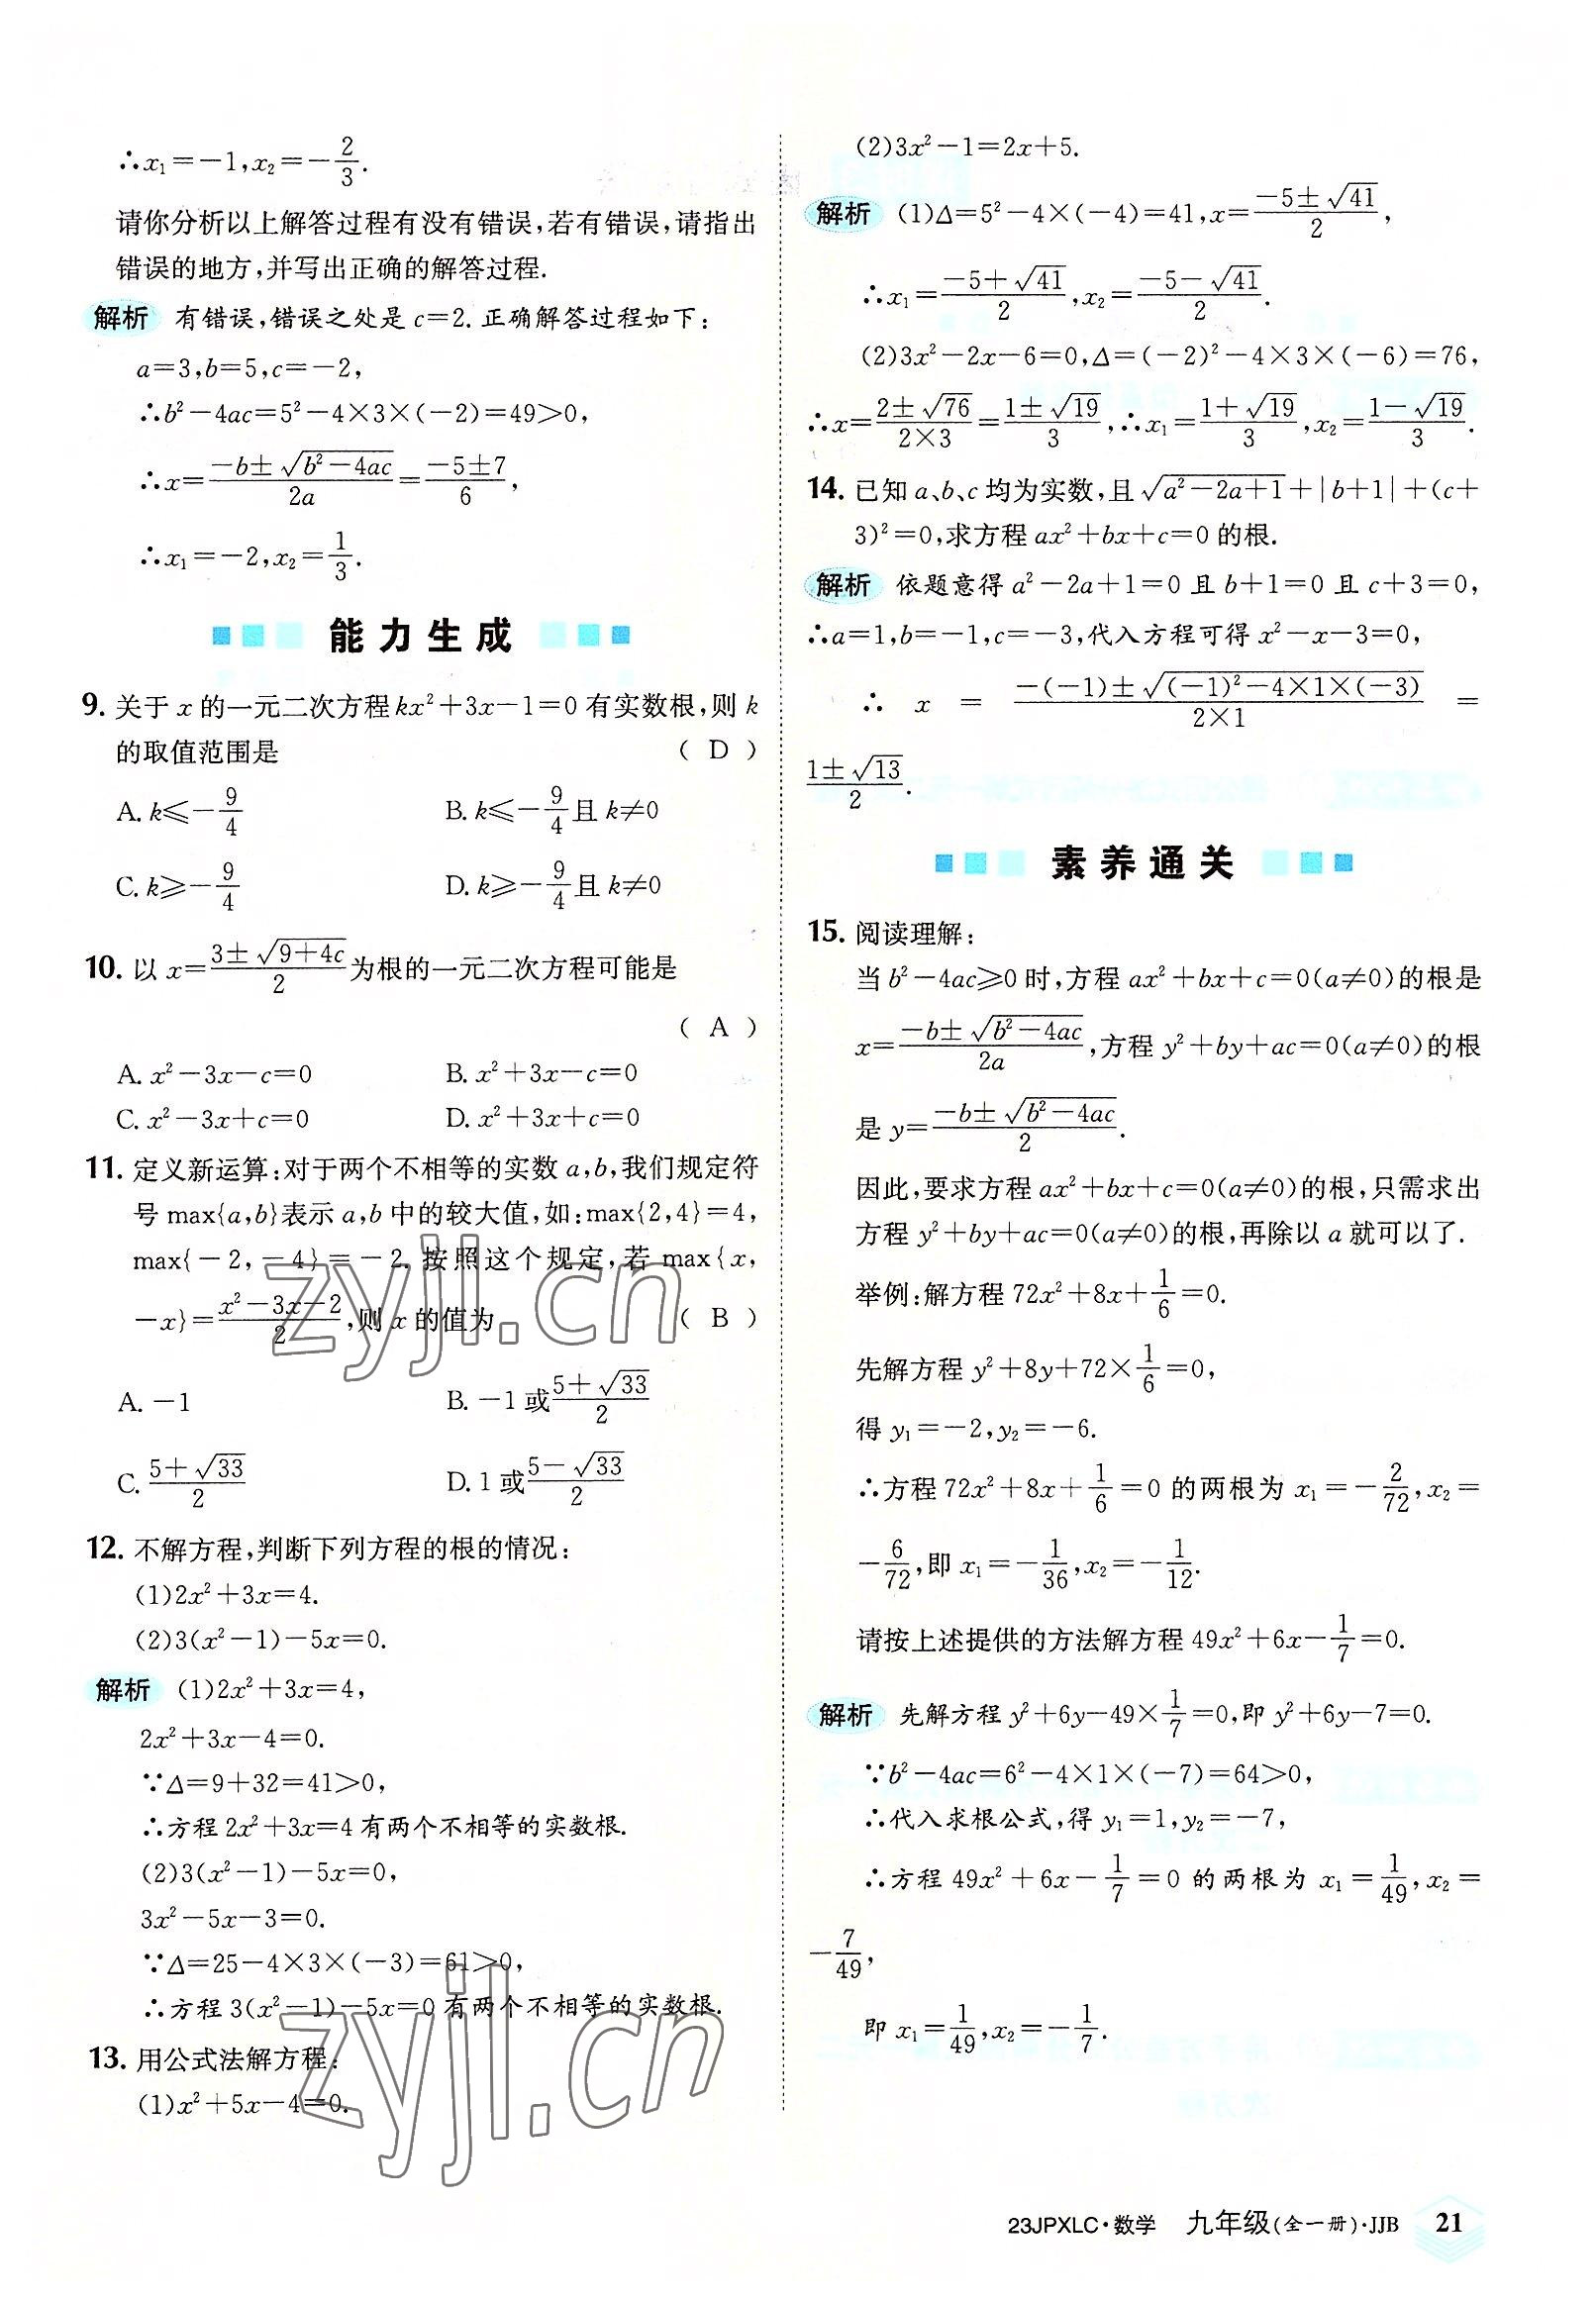 ∴x₁=−1,x₂=−2/3.
请你分析以上解答过程有没有错误,若有错误,请指出
错误的地方,并写出正确的解答过程.
解析 有错误,错误之处是 c=2. 正确解答过程如下:
a=3,b=5,c=−2,
∴b²−4ac=5²−4×3×(−2)=49>0,
∴x=(−b±√(b²−4ac))/2a=(−5±7)/6,
∴x₁=−2,x₂=1/3.
能力生成
9. 关于 x 的一元二次方程 kx²+3x−1=0 有实数根,则 k
的取值范围是 ( D )
A. k⩽−9/4 B. k⩽−9/4且 k≠0
C. k⩾−9/4 D. k⩾−9/4且 k≠0
10. 以 x=(3±√(9+4c))/2为根的一元二次方程可能是
( A )
A. x²−3x−c=0 B. x²+3x−c=0
C. x²−3x+c=0 D. x²+3x+c=0
11. 定义新运算:对于两个不相等的实数 a,b,我们规定符
号 max{a,b}表示 a,b 中的较大值,如:max{2,4}=4,
max{−2,−4}=−2. 按照这个规定,若 max{x,
−x}=(x²−3x−2)/2,则 x 的值为 ( B )
A. −1 B. −1 或(5+√33)/2
C. (5+√33)/2 D. 1 或(5−√33)/2
12. 不解方程,判断下列方程的根的情况:
(1)2x²+3x=4.
(2)3(x²−1)−5x=0.
解析 (1)2x²+3x=4,
2x²+3x−4=0.
∵Δ=9+32=41>0,
∴方程 2x²+3x=4 有两个不相等的实数根.
(2)3(x²−1)−5x=0,
3x²−5x−3=0.
∵Δ=25−4×3×(−3)=61>0,
∴方程 3(x²−1)−5x=0 有两个不相等的实数根.
13. 用公式法解方程:
(1)x²+5x−4=0.
(2)3x²−1=2x+5.
解析 (1)Δ=5²−4×(−4)=41,x=(−5±√41)/2,
∴x₁=(−5+√41)/2,x₂=(−5−√41)/2.
(2)3x²−2x−6=0,Δ=(−2)²−4×3×(−6)=76,
∴x=(2±√76)/(2×3)=(1±√19)/3,∴x₁=(1+√19)/3,x₂=(1−√19)/3.
14. 已知 a、b、c 均为实数,且√(a²−2a+1)+|b+1|+(c+
3)²=0,求方程 ax²+bx+c=0 的根.
解析 依题意得 a²−2a+1=0 且 b+1=0 且 c+3=0,
∴a=1,b=−1,c=−3,代入方程可得 x²−x−3=0,
∴ x = (−(−1)±√((−1)²−4×1×(−3)))/(2×1) =
(1±√13)/2.
素养通关
15. 阅读理解:
当 b²−4ac⩾0 时,方程 ax²+bx+c=0(a≠0)的根是
x=(−b±√(b²−4ac))/2a,方程 y²+by+ac=0(a≠0)的根
是 y=(−b±√(b²−4ac))/2.
因此,要求方程 ax²+bx+c=0(a≠0)的根,只需求出
方程 y²+by+ac=0(a≠0)的根,再除以 a 就可以了.
举例:解方程 72x²+8x+1/6=0.
先解方程 y²+8y+72×1/6=0,
得 y₁=−2,y₂=−6.
∴方程 72x²+8x+1/6=0 的两根为 x₁=−2/72,x₂=
−6/72,即 x₁=−1/36,x₂=−1/12.
请按上述提供的方法解方程 49x²+6x−1/7=0.
解析 先解方程 y²+6y−49×1/7=0,即 y²+6y−7=0.
∵b²−4ac=6²−4×1×(−7)=64>0,
∴代入求根公式,得 y₁=1,y₂=−7,
∴方程 49x²+6x−1/7=0 的两根为 x₁=1/49,x₂=
−7/49,
即 x₁=1/49,x₂=−1/7.
zyjl.cn
zyjl.cn
23JPXLC·数学 九年级(全一册)·JJB 21